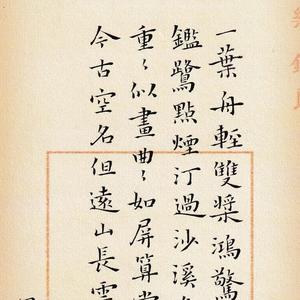 一葉舟輕雙槳鴻驚
鑑鷺點煙汀過沙溪
重〻似畫曲〻如屏算
今古空名但遠山長雲